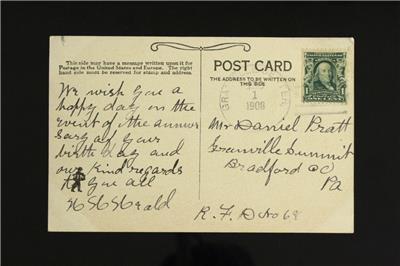 This side may have a message written upon it for
Postage in the United States and Europe. The right
hand side must be reserved for stamp and address.
We wish you a
happy day on the
event of the anniver
sary of your
birth day and
our kind regards
to you all
POST CARD
THE ADDRESS TO BE WRITTEN ON
THIS SIDE
1
1908
Mr Daniel Pratt
Granville Summit
Bradford CO
Pa
R. F. D No 68